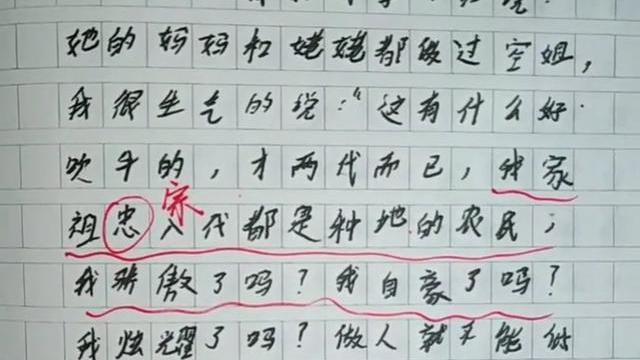 她的妈妈和姥姥都做过空姐，
我很生气的说："这有什么好
吹牛的，才两代而已，我家
祖忠八代都是种地的农民，
宗
我骄傲了吗？我自豪了吗？
我炫耀了吗？做人就不能